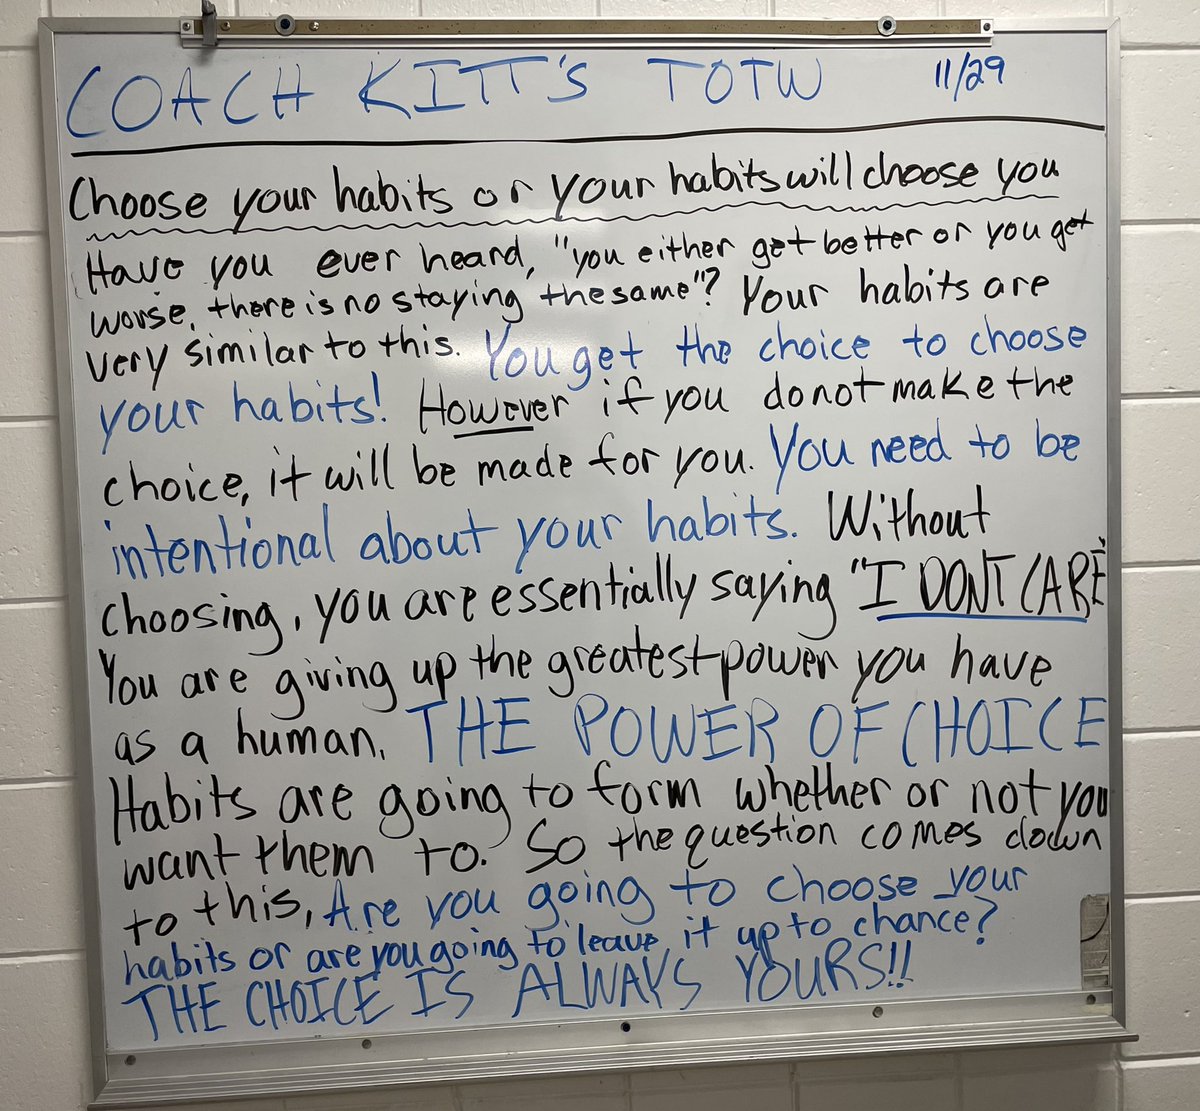 COACH KITT'S TOTW 11/29
Choose your habits or your habits will choose you
Have you ever heard, "you either get better or you get
worse, there is no staying the same"? Your habits are
very similar to this. You get the choice to choose
your habits! However if you do not make the
choice, it will be made for you. You need to be
intentional about your habits. Without
choosing, you are essentially saying "I DONT CARE"
You are giving up the greatest power you have
as a human, THE POWER OF CHOICE
Habits are going to form whether or not you
want them to. So the question comes down
to this, Are you going to choose your
habits or are you going to leave it up to chance?
THE CHOICE IS ALWAYS YOURS!!